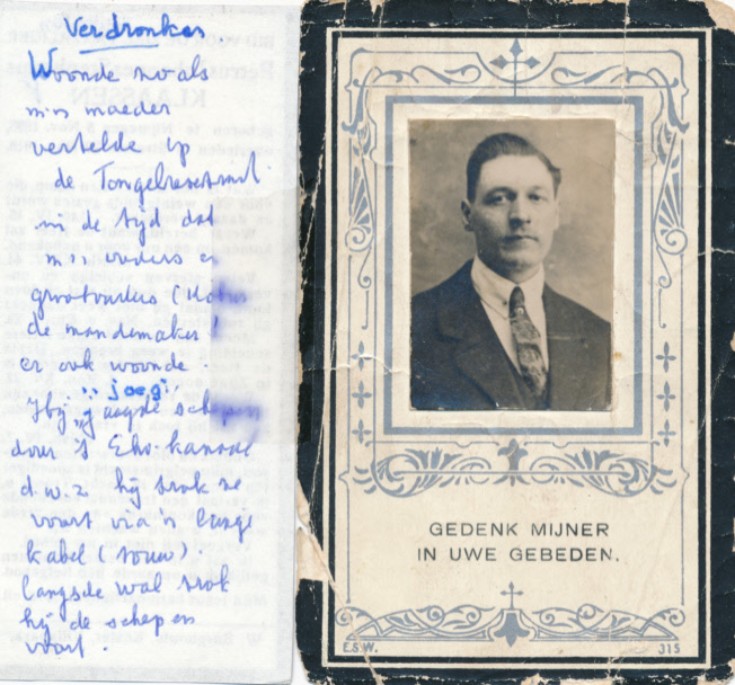 Verdronken
Woonde zoals
m'n moeder
vertelde op
de Tongelresestr
in de tijd dat
m'n ouders en
grootouders (
de mandemaker!
er ook woonde.
"joeg"
Hij "jaagde schepen
door 't Ehv-kanaal
d.w.z. hij trok ze
voort via 'n lange
kabel (touw).
langs de wal trok
hij de schepen
voort.
GEDENK MIJNER
IN UWE GEBEDEN.
E.S.W. 315